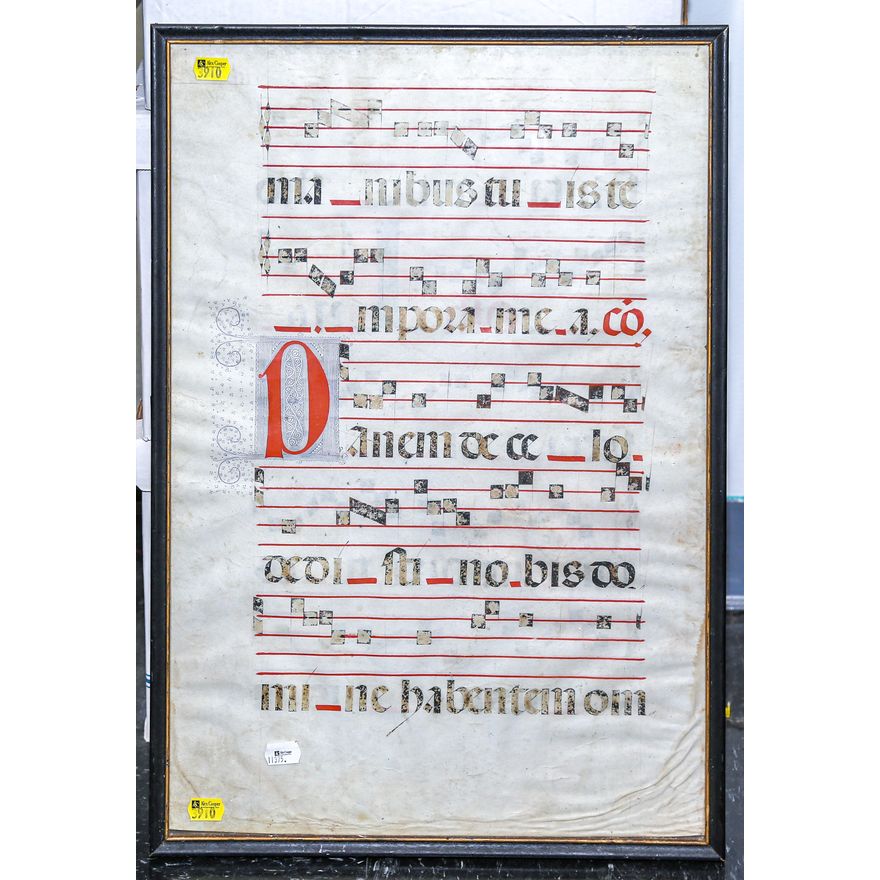 Alex Cooper
3910
ma_nibus tu_is te
_._mpora_me_a. cō.
Panem de ce_lo_
dedi_sti_no_bis do
mi_ne habentem om
Alex Cooper
11375.
Alex Cooper
3910